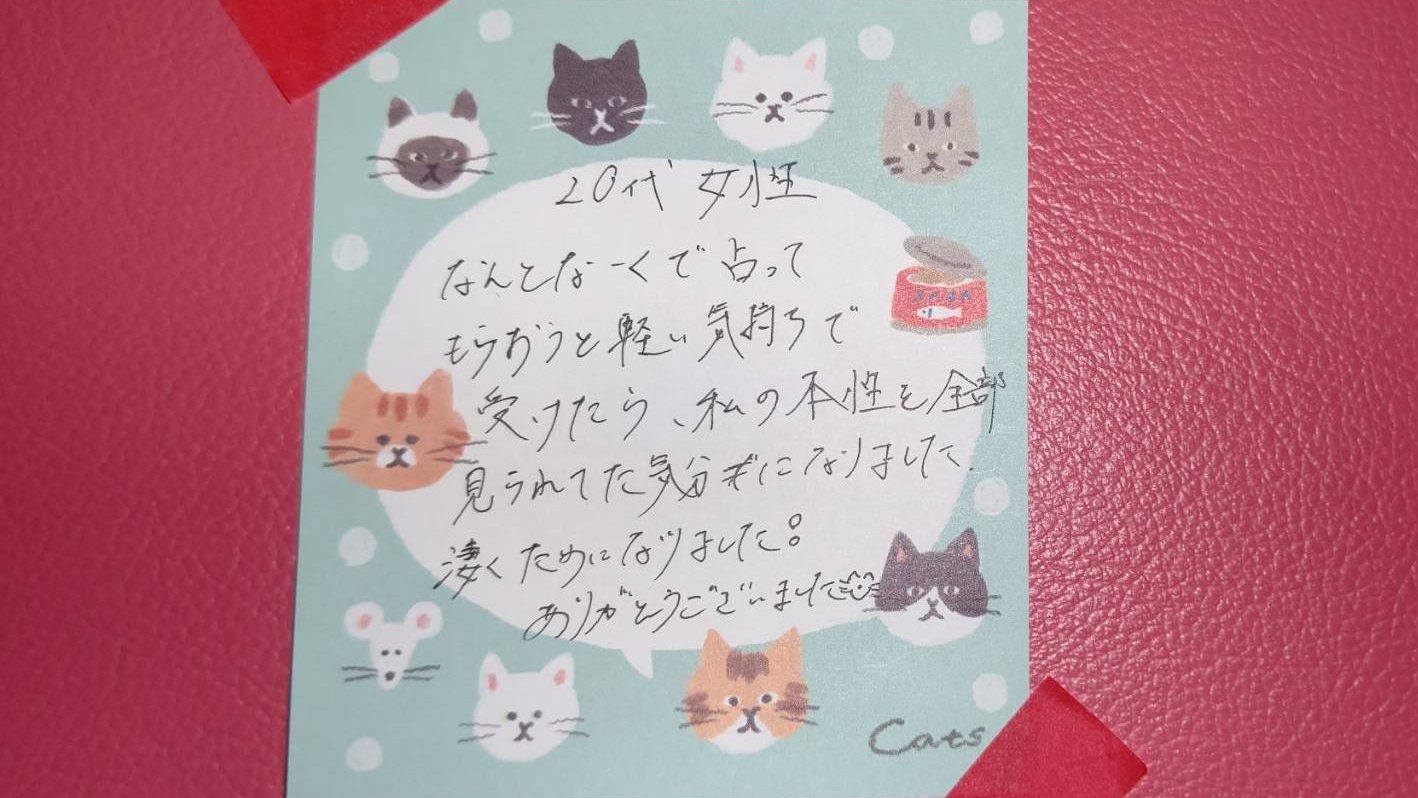 20代 女性
なんとなーくで占って
もらおうと軽い気持ちで
受けたら、私の本性を全部
見られてた気分になりました.
凄くためになりました。
ありがとうございました
Cats